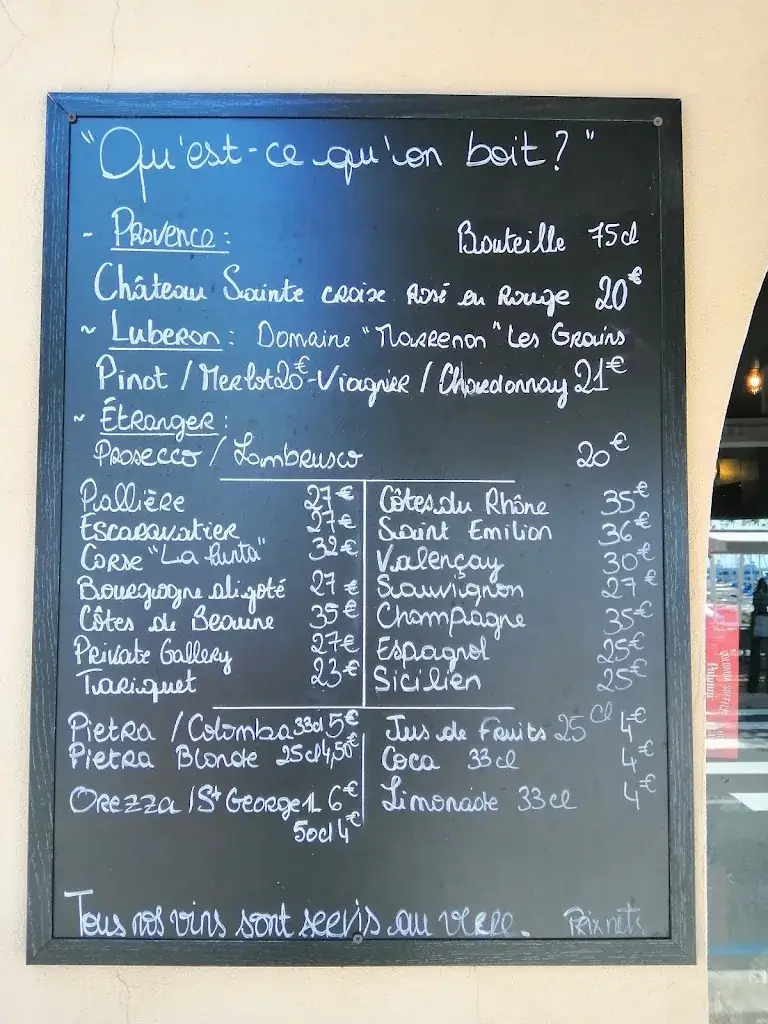 "Qu'est-ce qu'on boit ?"
- Provence : Bouteille 75cl
Château Sainte croix Rosé ou Rouge 20€
~ Luberon : Domaine "Marrenon" Les Grains
Pinot / Merlot 20€ - Viognier / Chardonnay 21€
~ Étranger :
Prosecco / Lambrusco 20€
Pallière 27€
Escaravatier 27€
Corse "La Punta" 32€
Bourgogne aligoté 27€
Côtes de Beaune 35€
Private Gallery 27€
Tariquet 23€
Côtes du Rhône 35€
Saint Emilion 36€
Valençay 30€
Sauvignon 27€
Champagne 35€
Espagnol 25€
Sicilien 25€
Pietra / Colomba 33cl 5€
Pietra Blonde 25cl 4,50€
Orezza / St George 1L 6€
50cl 4€
Jus de Fruits 25 cl 4€
Coca 33cl 4€
Limonade 33cl 4€
Tous nos vins sont servis au verre. Prix nets